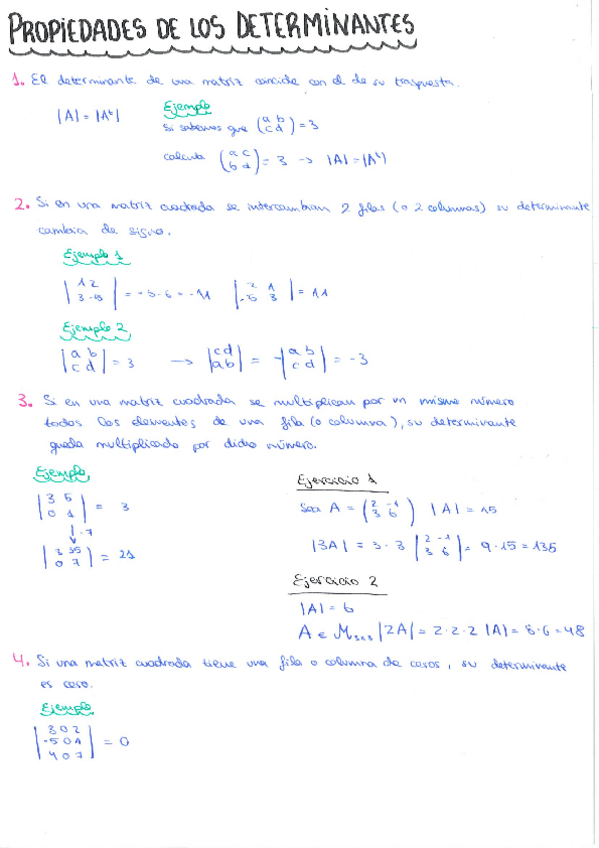 PROPIEDADES DE LOS DETERMINANTES
1. El determinante de una matriz coincide con el de su traspuesta.
|A| = |Aᵗ|
Ejemplo
Si sabemos que (a b / c d) = 3
calcula (a c / b d) = 3 → |A| = |Aᵗ|
2. Si en una matriz cuadrada se intercambian 2 filas (o 2 columnas) su determinante
cambia de signo.
Ejemplo 1
|1 2 / 3 -5| = -5-6 = -11 |2 1 / -5 3| = 11
Ejemplo 2
|a b / c d| = 3 → |c d / a b| = -|a b / c d| = -3
3. Si en una matriz cuadrada se multiplican por un mismo número
todos los elementos de una fila (o columna), su determinante
queda multiplicado por dicho número.
Ejemplo
|3 5 / 0 1| = 3
↓ ·7
|3 35 / 0 7| = 21
Ejercicio 1
Sea A = (2 -1 / 3 6) |A| = 15
|3A| = 3·3 |2 -1 / 3 6| = 9·15 = 135
Ejercicio 2
|A| = 6
A ∈ M₃ₓ₃ |2A| = 2·2·2 |A| = 8·6 = 48
4. Si una matriz cuadrada tiene una fila o columna de ceros, su determinante
es cero.
Ejemplo
|3 0 2 / -5 0 1 / 4 0 7| = 0